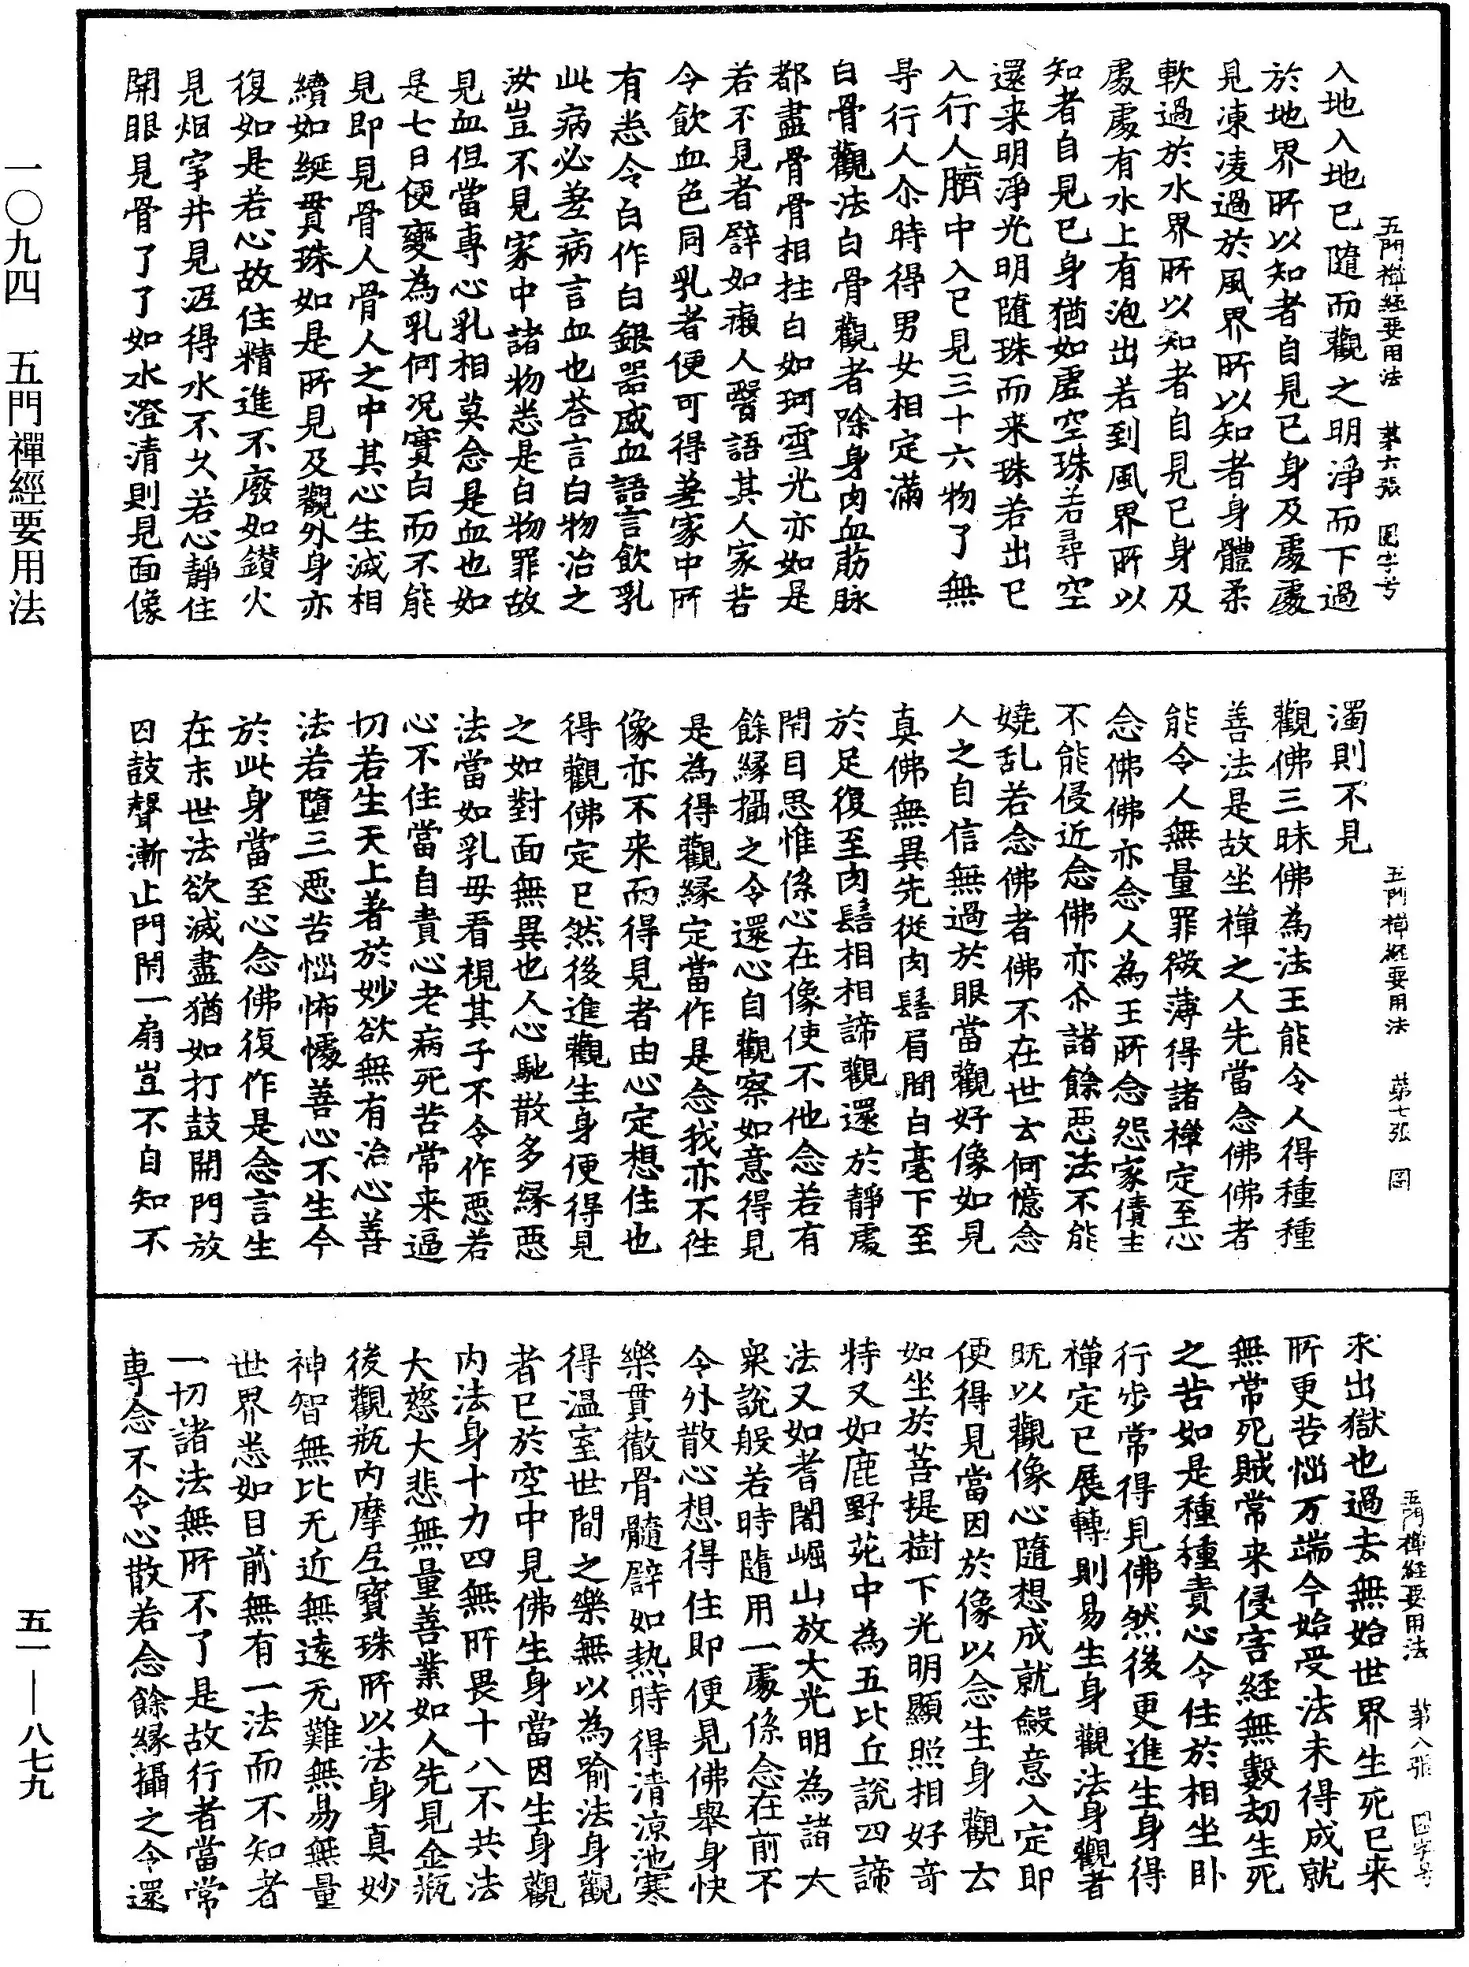 一〇九四　五門禪經要用法
五一——八七九
五門禪經要用法　第六張　圖字号
入地入地已隨而觀之明淨而下過
於地界所以知者自見已身及處處
見凍凌過於風界所以知者身體柔
軟過於水界所以知者自見已身及
處處有水上有泡出若到風界所以
知者自見已身猶如虛空珠若尋空
還来明淨光明隨珠而来珠若出已
入行人臍中入已見三十六物了無
㝵行人尒時得男女相定滿
白骨觀法白骨觀者除身肉血筋脉
都盡骨骨相拄白如珂雪光亦如是
若不見者譬如癩人醫語其人家若
令飲血色同乳者便可得差家中所
有悉令白作白銀器盛血語言飲乳
此病必差病言血也荅言白物治之
汝豈不見家中諸物悉是白物罪故
見血但當專心乳相莫念是血也如
是七日便變為乳何况實白而不能
見即見骨人骨人之中其心生滅相
續如綖貫珠如是所見及觀外身亦
復如是若心故住精進不廢如鑽火
見烟穿井見泥得水不久若心靜住
開眼見骨了了如水澄清則見面像
五門禪經要用法　第七張　圖
濁則不見
觀佛三昧佛為法王能令人得種種
善法是故坐禪之人先當念佛佛者
能令人無量罪微薄得諸禪定至心
念佛佛亦念人為王所念怨家債主
不能侵近念佛亦尒諸餘惡法不能
嬈乱若念佛者佛不在世云何憶念
人之自信無過於眼當觀好像如見
真佛無異先從肉髻眉間白毫下至
於足復至肉髻相相諦觀還於靜處
閉目思惟係心在像使不他念若有
餘緣攝之令還心自觀察如意得見
是為得觀緣定當作是念我亦不往
像亦不来而得見者由心定想住也
得觀佛定已然後進觀生身便得見
之如對面無異也人心馳散多緣惡
法當如乳母看視其子不令作惡若
心不住當自責心老病死苦常来逼
切若生天上著於妙欲無有治心善
法若墮三惡苦惱怖懅善心不生今
於此身當至心念佛復作是念言生
在末世法欲滅盡猶如打鼓開門放
囚鼓聲漸止門閉一扇豈不自知不
五門禪經要用法　第八張　圖字号
求出獄也過去無始世界生死已来
所更苦惱万端今始受法未得成就
無常死賊常来侵害經無數劫生死
之苦如是種種責心令住於相坐卧
行步常得見佛然後更進生身得
禪定已展轉則易生身觀法身觀者
既以觀像心隨想成就斂意入定即
便得見當因於像以念生身觀云
如坐於菩提樹下光明顯照相好奇
特又如鹿野苑中為五比丘說四諦
法又如耆闍崛山放大光明為諸大
衆說般若時隨用一處係念在前不
令外散心想得住即便見佛舉身快
樂貫徹骨髓譬如熱時得清涼池寒
得溫室世間之樂無以為喻法身觀
者已於空中見佛生身當因生身觀
內法身十力四無所畏十八不共法
大慈大悲無量善業如人先見金瓶
後觀瓶內摩尼寶珠所以法身真妙
神智無比无近無遠无難無易無量
世界悉如目前無有一法而不知者
一切諸法無所不了是故行者當常
專念不令心散若念餘緣攝之令還